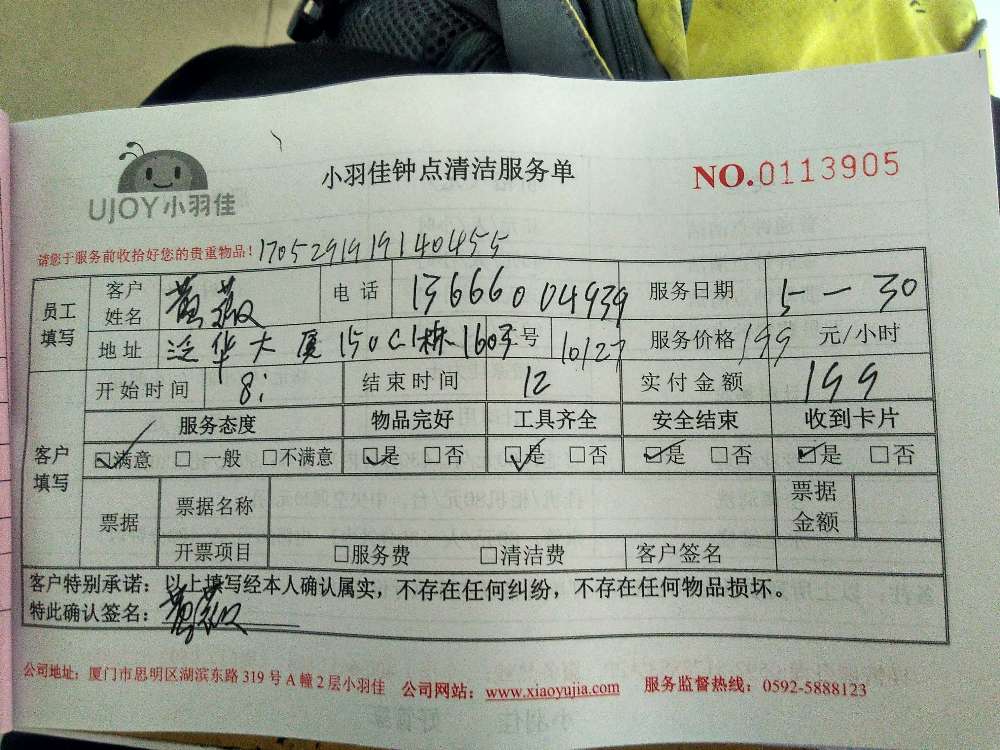 小羽佳钟点清洁服务单
NO.0113905
UJOY小羽佳
请您于服务前收拾好您的贵重物品！1705291919140455
员工填写 客户姓名 黄薇 电话 13666004939 服务日期 5－30
地址 泛华大厦150C1栋1603号 10/27 服务价格 199 元/小时
客户填写 开始时间 8: 结束时间 12 实付金额 199
服务态度 物品完好 工具齐全 安全结束 收到卡片
☑满意 □一般 □不满意 ☑是 □否 ☑是 □否 ☑是 □否 ☑是 □否
票据 票据名称 票据金额
开票项目 □服务费 □清洁费 客户签名
客户特别承诺：以上填写经本人确认属实，不存在任何纠纷，不存在任何物品损坏。
特此确认签名：黄薇
公司地址：厦门市思明区湖滨东路319号A幢2层小羽佳 公司网站：www.xiaoyujia.com 服务监督热线：0592-5888123